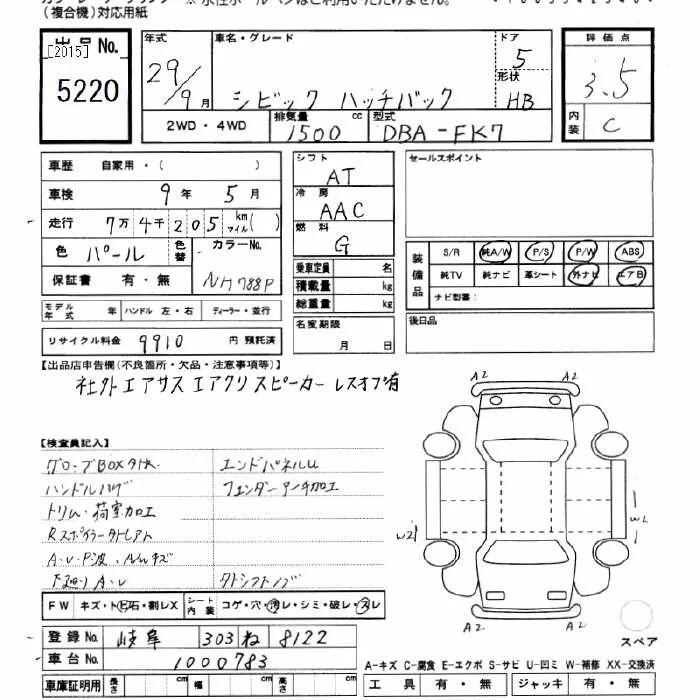 (複合機)対応用紙
出品No.
[2015]
5220
年式
29/9月
車名・グレード
シビック ハッチバック
ドア
5
形状
HB
2WD・4WD
排気量
1500 cc
型式
DBA-FK7
評価点
3.5
内装
C
車歴 自家用・( )
車検 9年 5月
走行 7万4千205 km マイル( )
色 パール 色替
カラーNo.
NH788P
保証書 有・無
モデル年式 年 ハンドル 左・右 ディーラー・並行
リサイクル料金 9910 円 預託済
シフト
AT
冷房
AAC
燃料
G
乗車定員 名
積載量 kg
総重量 kg
名変期限
月 日
セールスポイント
装備品
S/R 純A/W P/S P/W ABS
純TV 純ナビ 革シート 外ナビ エアB
ナビ型番:
後日品
【出品店申告欄(不良箇所・欠品・注意事項等)】
社外エアサス エアクリ スピーカー レスオプ有
【検査員記入】
グローブBOX
エンドパネルU
ハンドル
フェンダーアーチ加工
トリム・荷室加工
Rスポイラー
A・U・P波、A/Wキズ
下廻りA・U
シフトノブ
FW キズ・ト飛石・割レX
シート内装 コゲ・穴・汚レ・シミ・破レ・スレ
登録No. 岐阜 303 ね 8122
車台No. 1000783
車庫証明用 長さ cm 幅 cm 高さ cm
A2 A2
W2 W2
A2 A2
スペア
A-キズ C-腐食 E-エクボ S-サビ U-凹ミ W-補修 XX-交換済
工具 有・無 ジャッキ 有・無